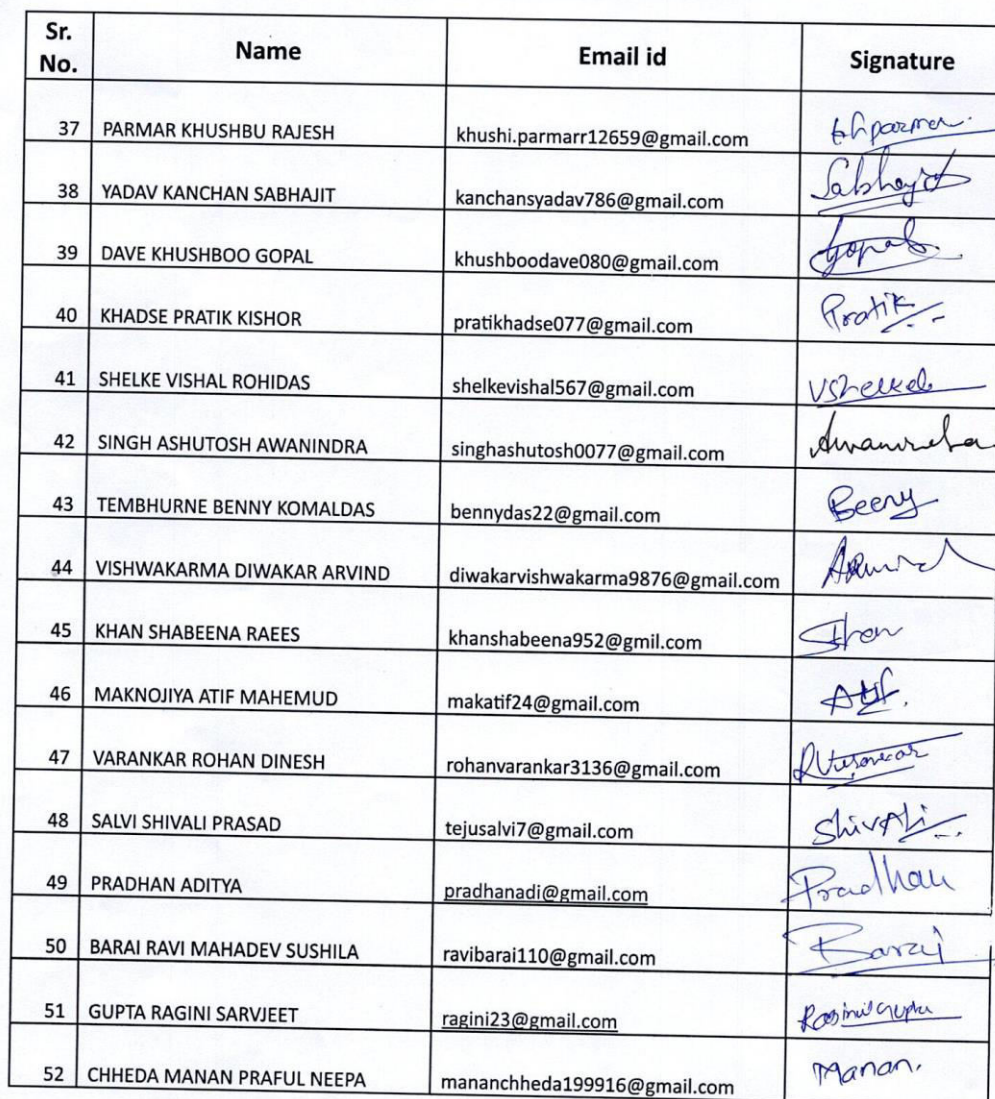 Sr. No. Name Email id Signature
37 PARMAR KHUSHBU RAJESH khushi.parmarr12659@gmail.com khparmar.
38 YADAV KANCHAN SABHAJIT kanchansyadav786@gmail.com Sabhajit
39 DAVE KHUSHBOO GOPAL khushboodave080@gmail.com Gopal.
40 KHADSE PRATIK KISHOR pratikhadse077@gmail.com Pratik
41 SHELKE VISHAL ROHIDAS shelkevishal567@gmail.com
42 SINGH ASHUTOSH AWANINDRA singhashutosh0077@gmail.com
43 TEMBHURNE BENNY KOMALDAS bennydas22@gmail.com
44 VISHWAKARMA DIWAKAR ARVIND diwakarvishwakarma9876@gmail.com
45 KHAN SHABEENA RAEES khanshabeena952@gmil.com
46 MAKNOJIYA ATIF MAHEMUD makatif24@gmail.com Atif.
47 VARANKAR ROHAN DINESH rohanvarankar3136@gmail.com
48 SALVI SHIVALI PRASAD tejusalvi7@gmail.com ShivAli
49 PRADHAN ADITYA pradhanadi@gmail.com Pradhan
50 BARAI RAVI MAHADEV SUSHILA ravibarai110@gmail.com Barai
51 GUPTA RAGINI SARVJEET ragini23@gmail.com
52 CHHEDA MANAN PRAFUL NEEPA mananchheda199916@gmail.com Manan.